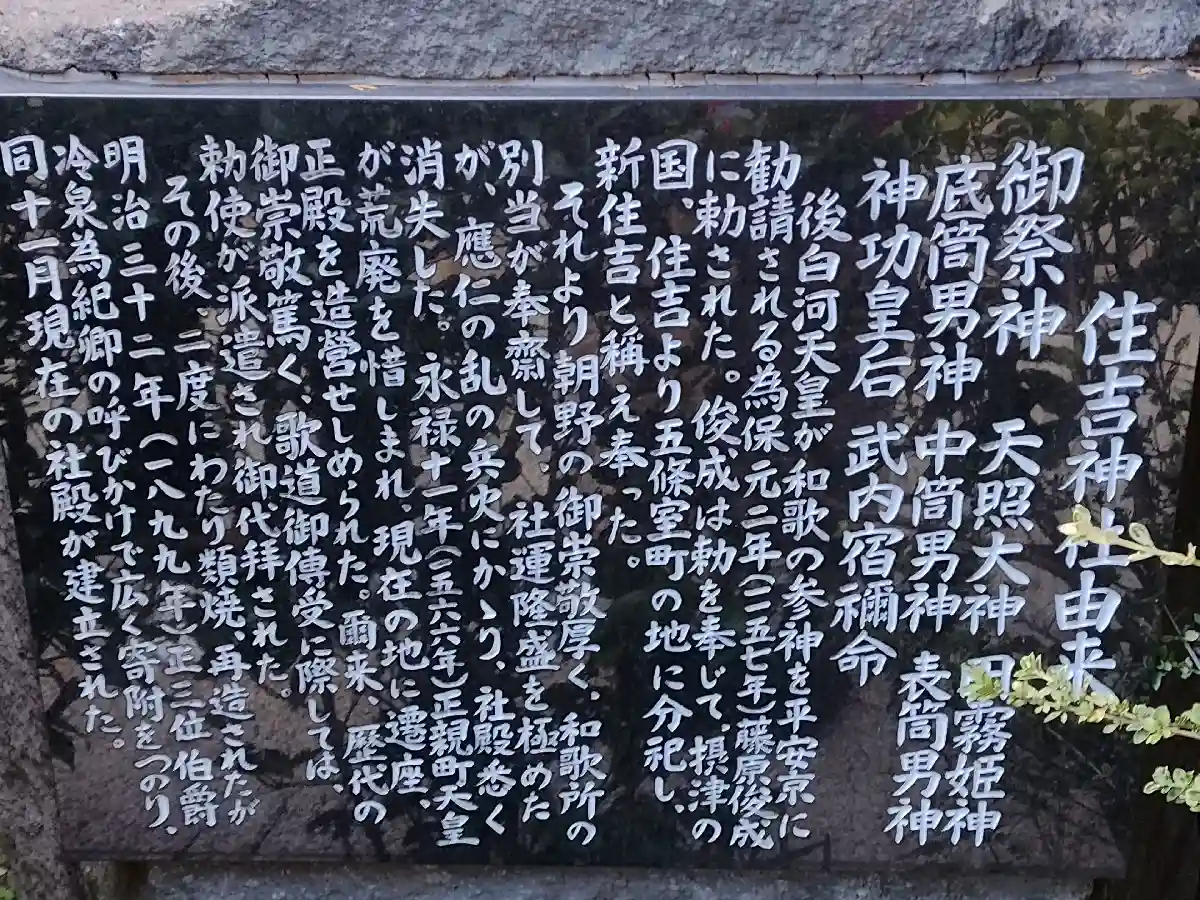 住吉神社由来
御祭神 天照大神 田霧姫神
底筒男神 中筒男神 表筒男神
神功皇后 武内宿禰命
後白河天皇が和歌の参神を平安京に
勧請される為保元二年(一一五七年)藤原俊成
に勅された。俊成は勅を奉じて、摂津の
国、住吉より五條室町の地に分祀し、
新住吉と稱え奉った。
それより朝野の御崇敬厚く、和歌所の
別当が奉齋して、社運隆盛を極めた
が、應仁の乱の兵火にかゝり、社殿悉く
消失した。永禄十一年(一五六六年)正親町天皇
が荒廃を惜しまれ、現在の地に遷座、
正殿を造営せしめられた。爾来、歴代の
御崇敬篤く、歌道御傳受に際しては、
勅使が派遣され御代拝された。
その後、二度にわたり類焼、再造されたが
明治三十二年(一八九九年)正三位伯爵
冷泉為紀卿の呼びかけで広く寄附をつのり、
同十一月現在の社殿が建立された。